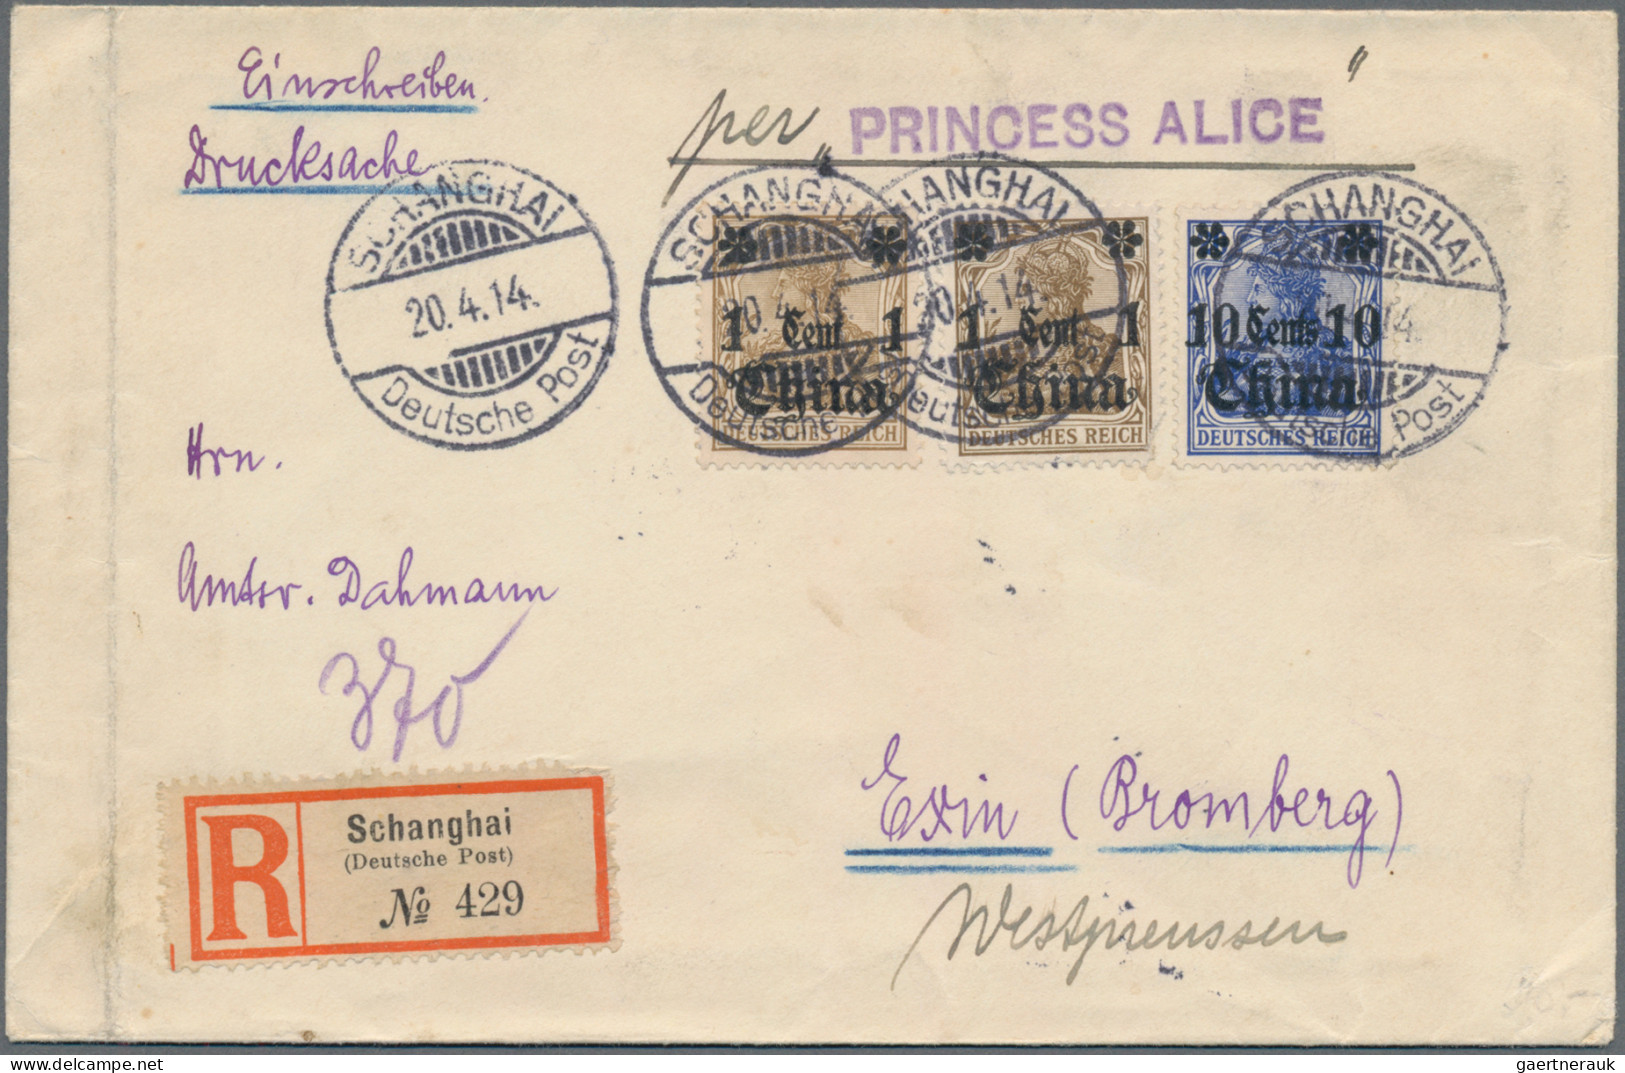 Einschreiben.
Drucksache
per „PRINCESS ALICE"
SCHANGHAI
20.4.14.
Deutsche Post
SCHANGHAI
20.4.14.
Deutsche
1 Cent 1
China
DEUTSCHES REICH
SCHANGHAI
20.4.14.
Deutsche Post
1 Cent 1
China
DEUTSCHES REICH
SCHANGHAI
14.
Deutsche Post
10 Cents 10
China
DEUTSCHES REICH
Hrn.
Amtsr. Dahmann
370
R
Schanghai
(Deutsche Post)
№ 429
Exin (Bromberg)
Westpreussen
www.delcampe.net
gaertnerauk